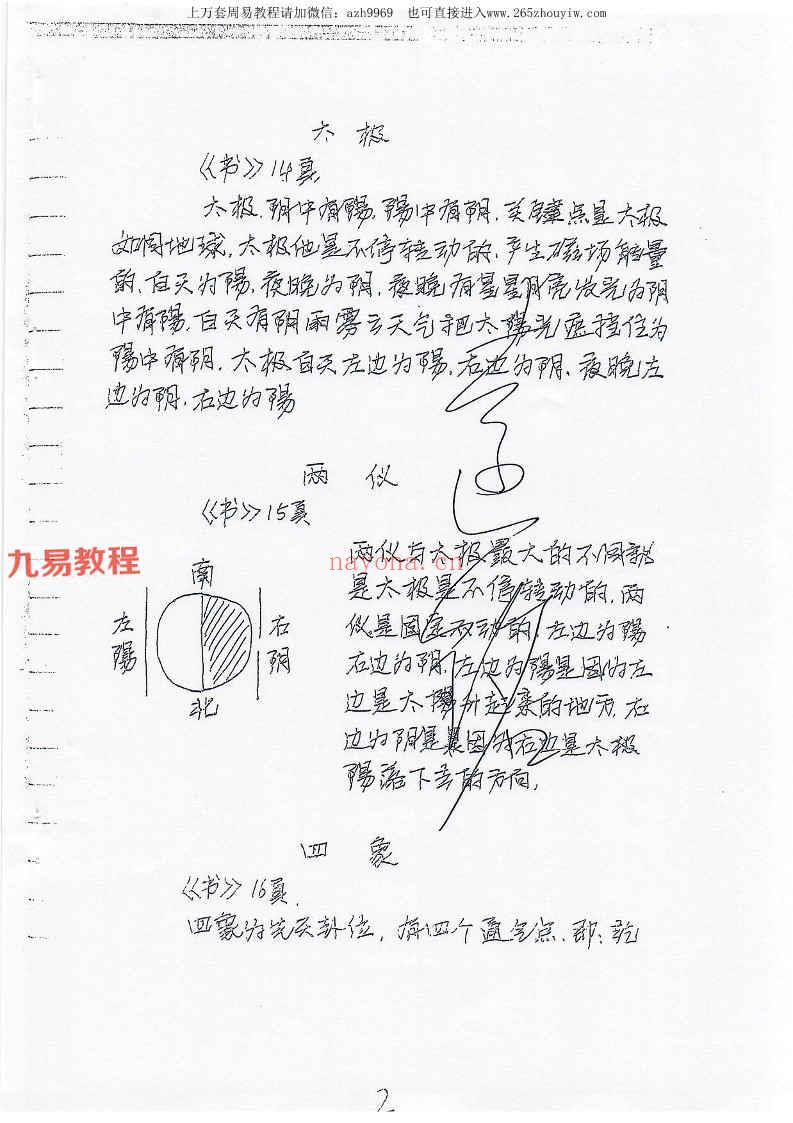 上万套周易教程请加微信：azh9969 也可直接进入www.265zhouyiw.com
太 极
《书》14页
太极.阴中有陽.陽中有阴.关键点是太极
如同地球.太极他是不停转动的.产生磁场能量
的.白天为陽.夜晚为阴.夜晚有星星月亮发光为阴
中有陽.白天有阴雨雾云天气把太陽光遮挡住为
陽中有阴.太极白天左边为陽.右边为阴.夜晚左
边为阴.右边为陽
两 仪
《书》15页
九易教程
nayona.cn
南
左陽
右阴
北
两仪与太极最大的不同就
是太极是不停转动的.两
仪是固定不动的.左边为陽
右边为阴.左边为陽是因为左
边是太陽升起来的地方.右
边为阴是因为右边是太极
陽落下去的方向.
四 象
《书》16页.
四象为先天卦位,有四个通气点.即:乾
2